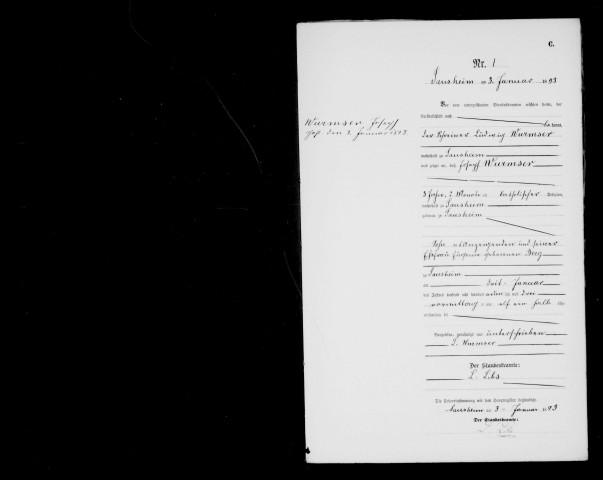 C.
Nr. 1
Sausheim am 3. Januar 1893
Vor dem unterzeichneten Standesbeamten erschien heute, der
Persönlichkeit nach
bekannt,
der Schreiner Ludwig Wurmser
wohnhaft zu Sausheim
und zeigte an, daß Joseph Wurmser
3 Jahre, 7 Monate alt, katholischer Religion,
wohnhaft zu Sausheim
geboren zu Sausheim
Sohn des Anzeigenden und seiner
Ehefrau Eugenie geborenen
zu Sausheim
am Januar
des Jahres tausend acht hundert neunzig und drei
vormittags um elf ein halb Uhr
verstorben sei
Vorgelesen, genehmigt und unterschrieben
L. Wurmser
Der Standesbeamte:
L. Libs
Die Uebereinstimmung mit dem Hauptregister beglaubigt
Sausheim am 3. Januar 1893
Der Standesbeamte:
Wurmser Joseph
gest. den 3. Januar 1893